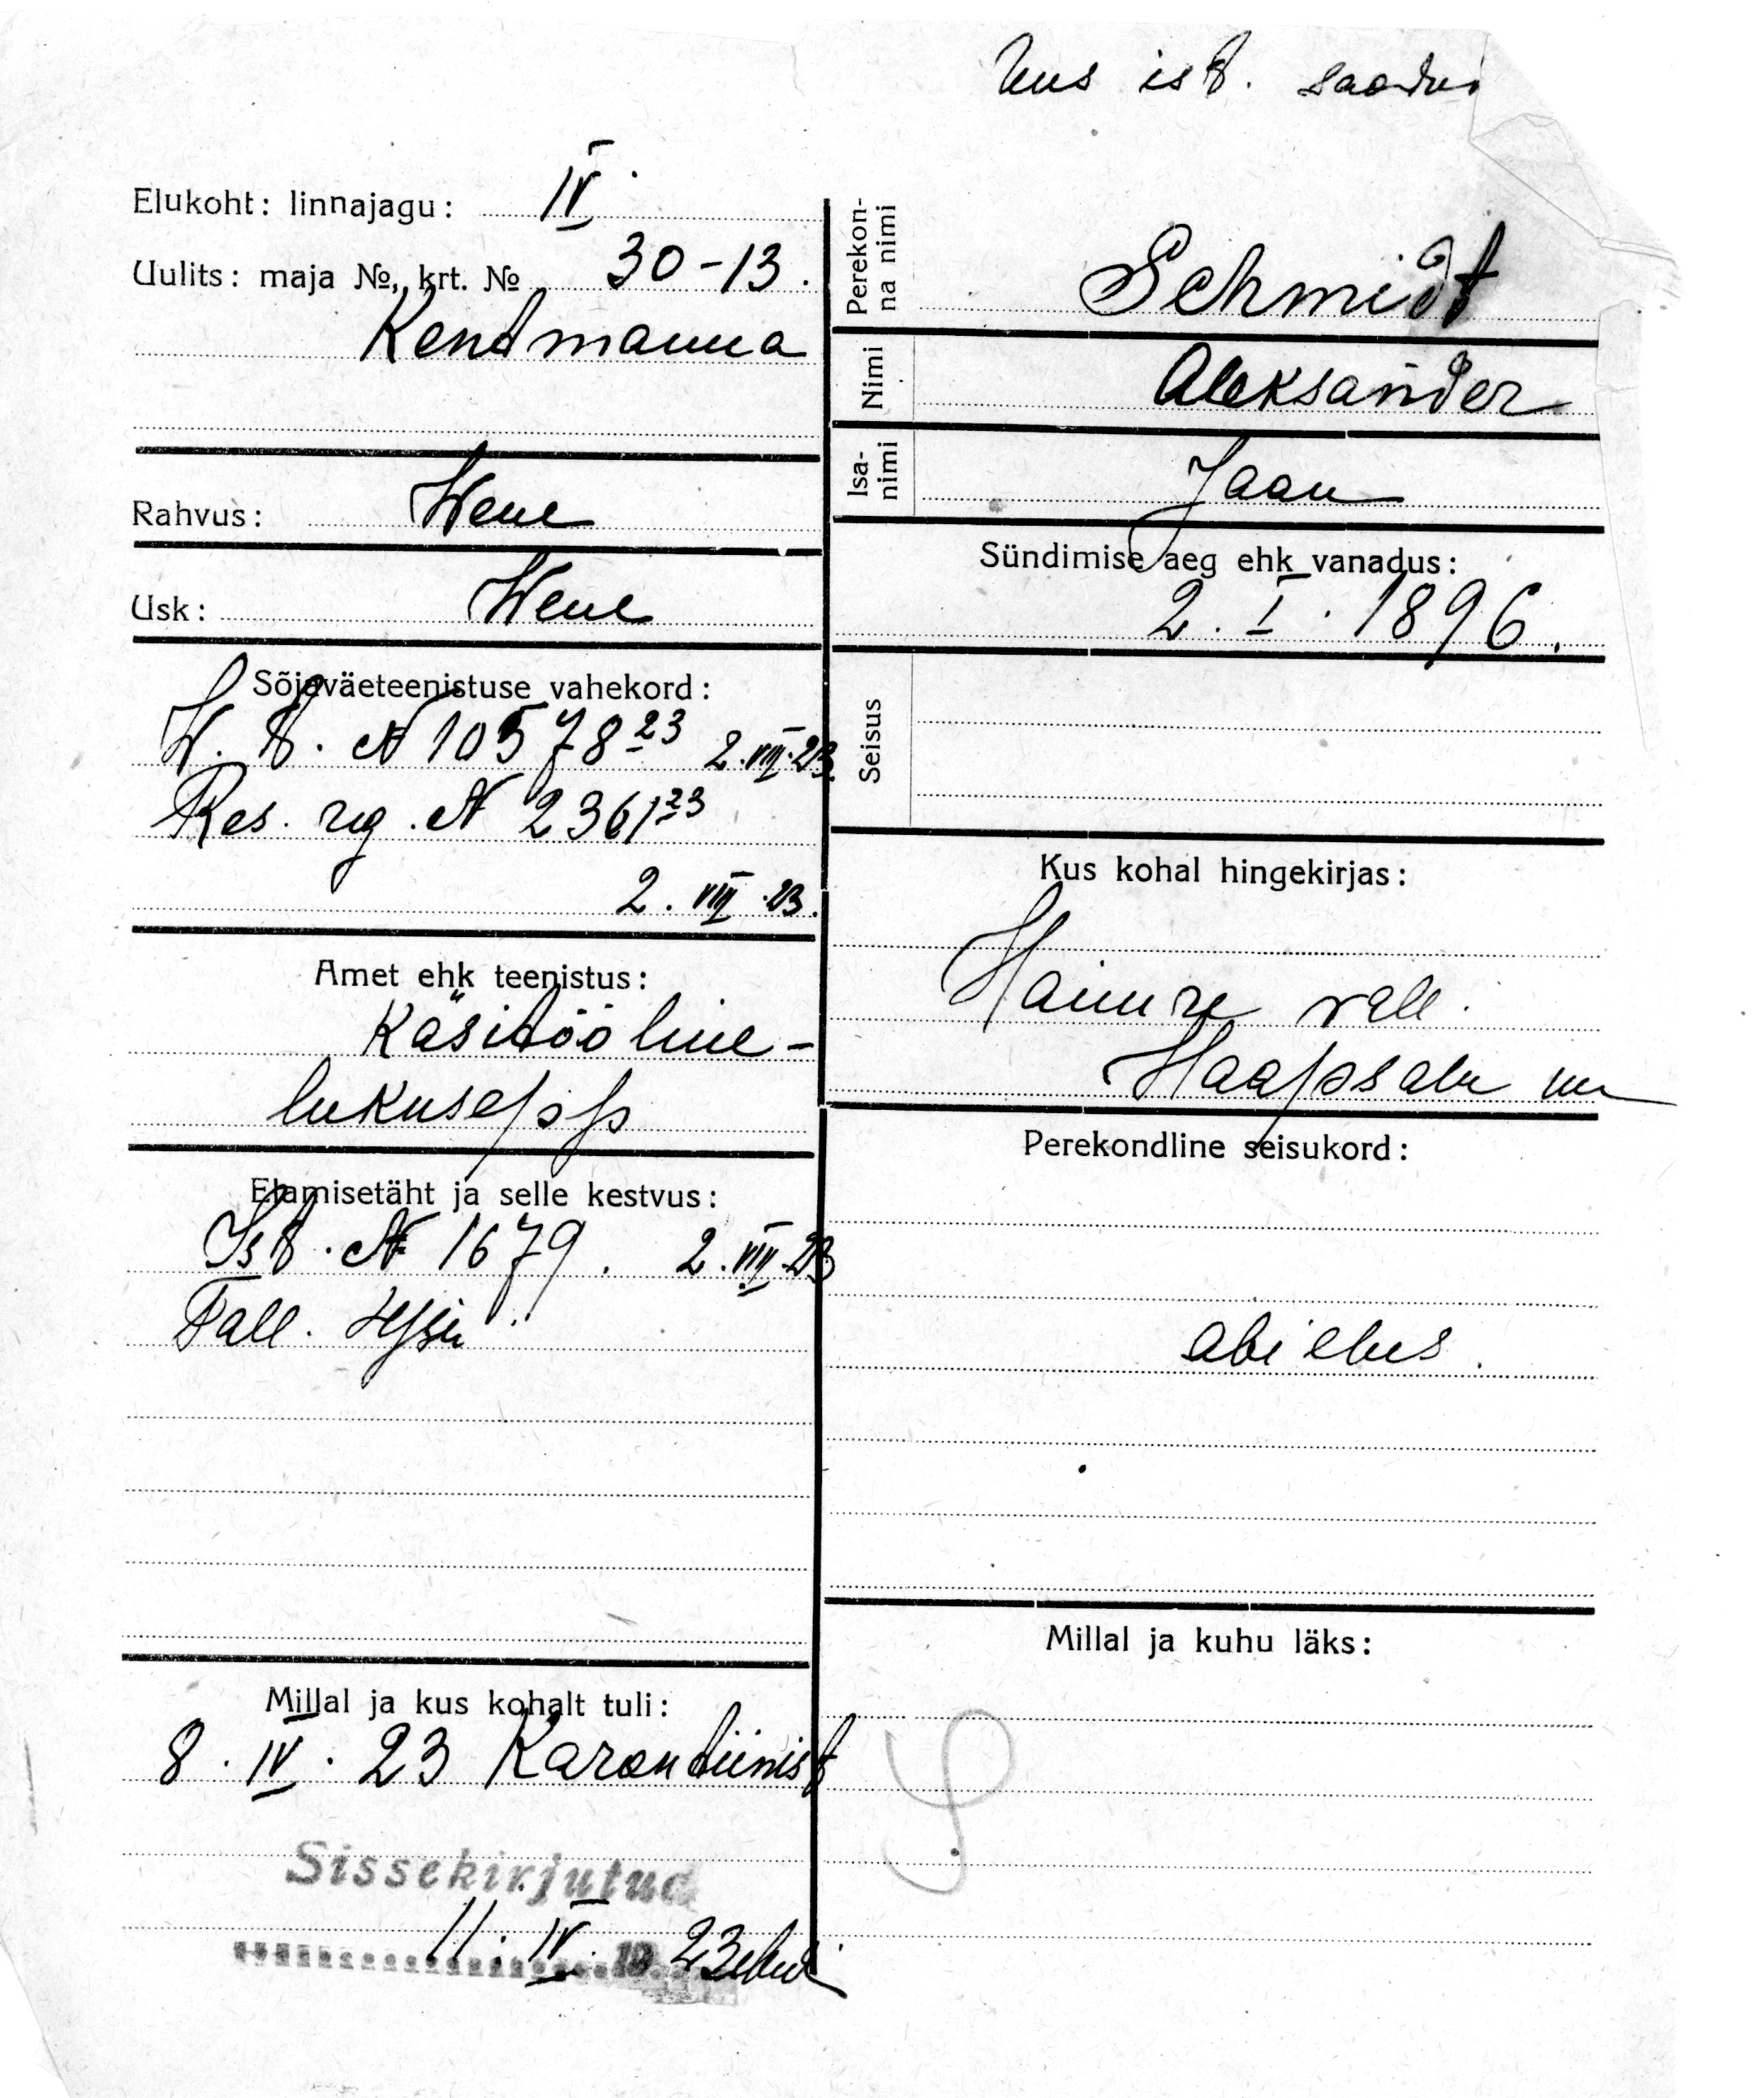 Uus ist. saadud
Elukoht: linnajagu: IV.
Uulits: maja №, krt. № 30-13.
Kentmanna
Rahvus: Wene
Usk: Wene
Sõjaväeteenistuse vahekord:
W. t. № 10578 23 2.VIII.23
Res. rg. № 2361 23
2.VIII.23.
Amet ehk teenistus:
Käsitööline-
lukusepp
Elamisetäht ja selle kestvus:
Ist. № 1679. 2.VIII.23
Tall.
Millal ja kus kohalt tuli:
8.IV.23 Karantiinist
Sissekirjutud
11.IV.1923
Perekonna nimi Schmidt
Nimi Aleksander
Isanimi Jaan
Sündimise aeg ehk vanadus:
2.I.1896.
Seisus
Kus kohal hingekirjas:
vall.
Haapsalu
Perekondline seisukord:
abielus.
Millal ja kuhu läks: